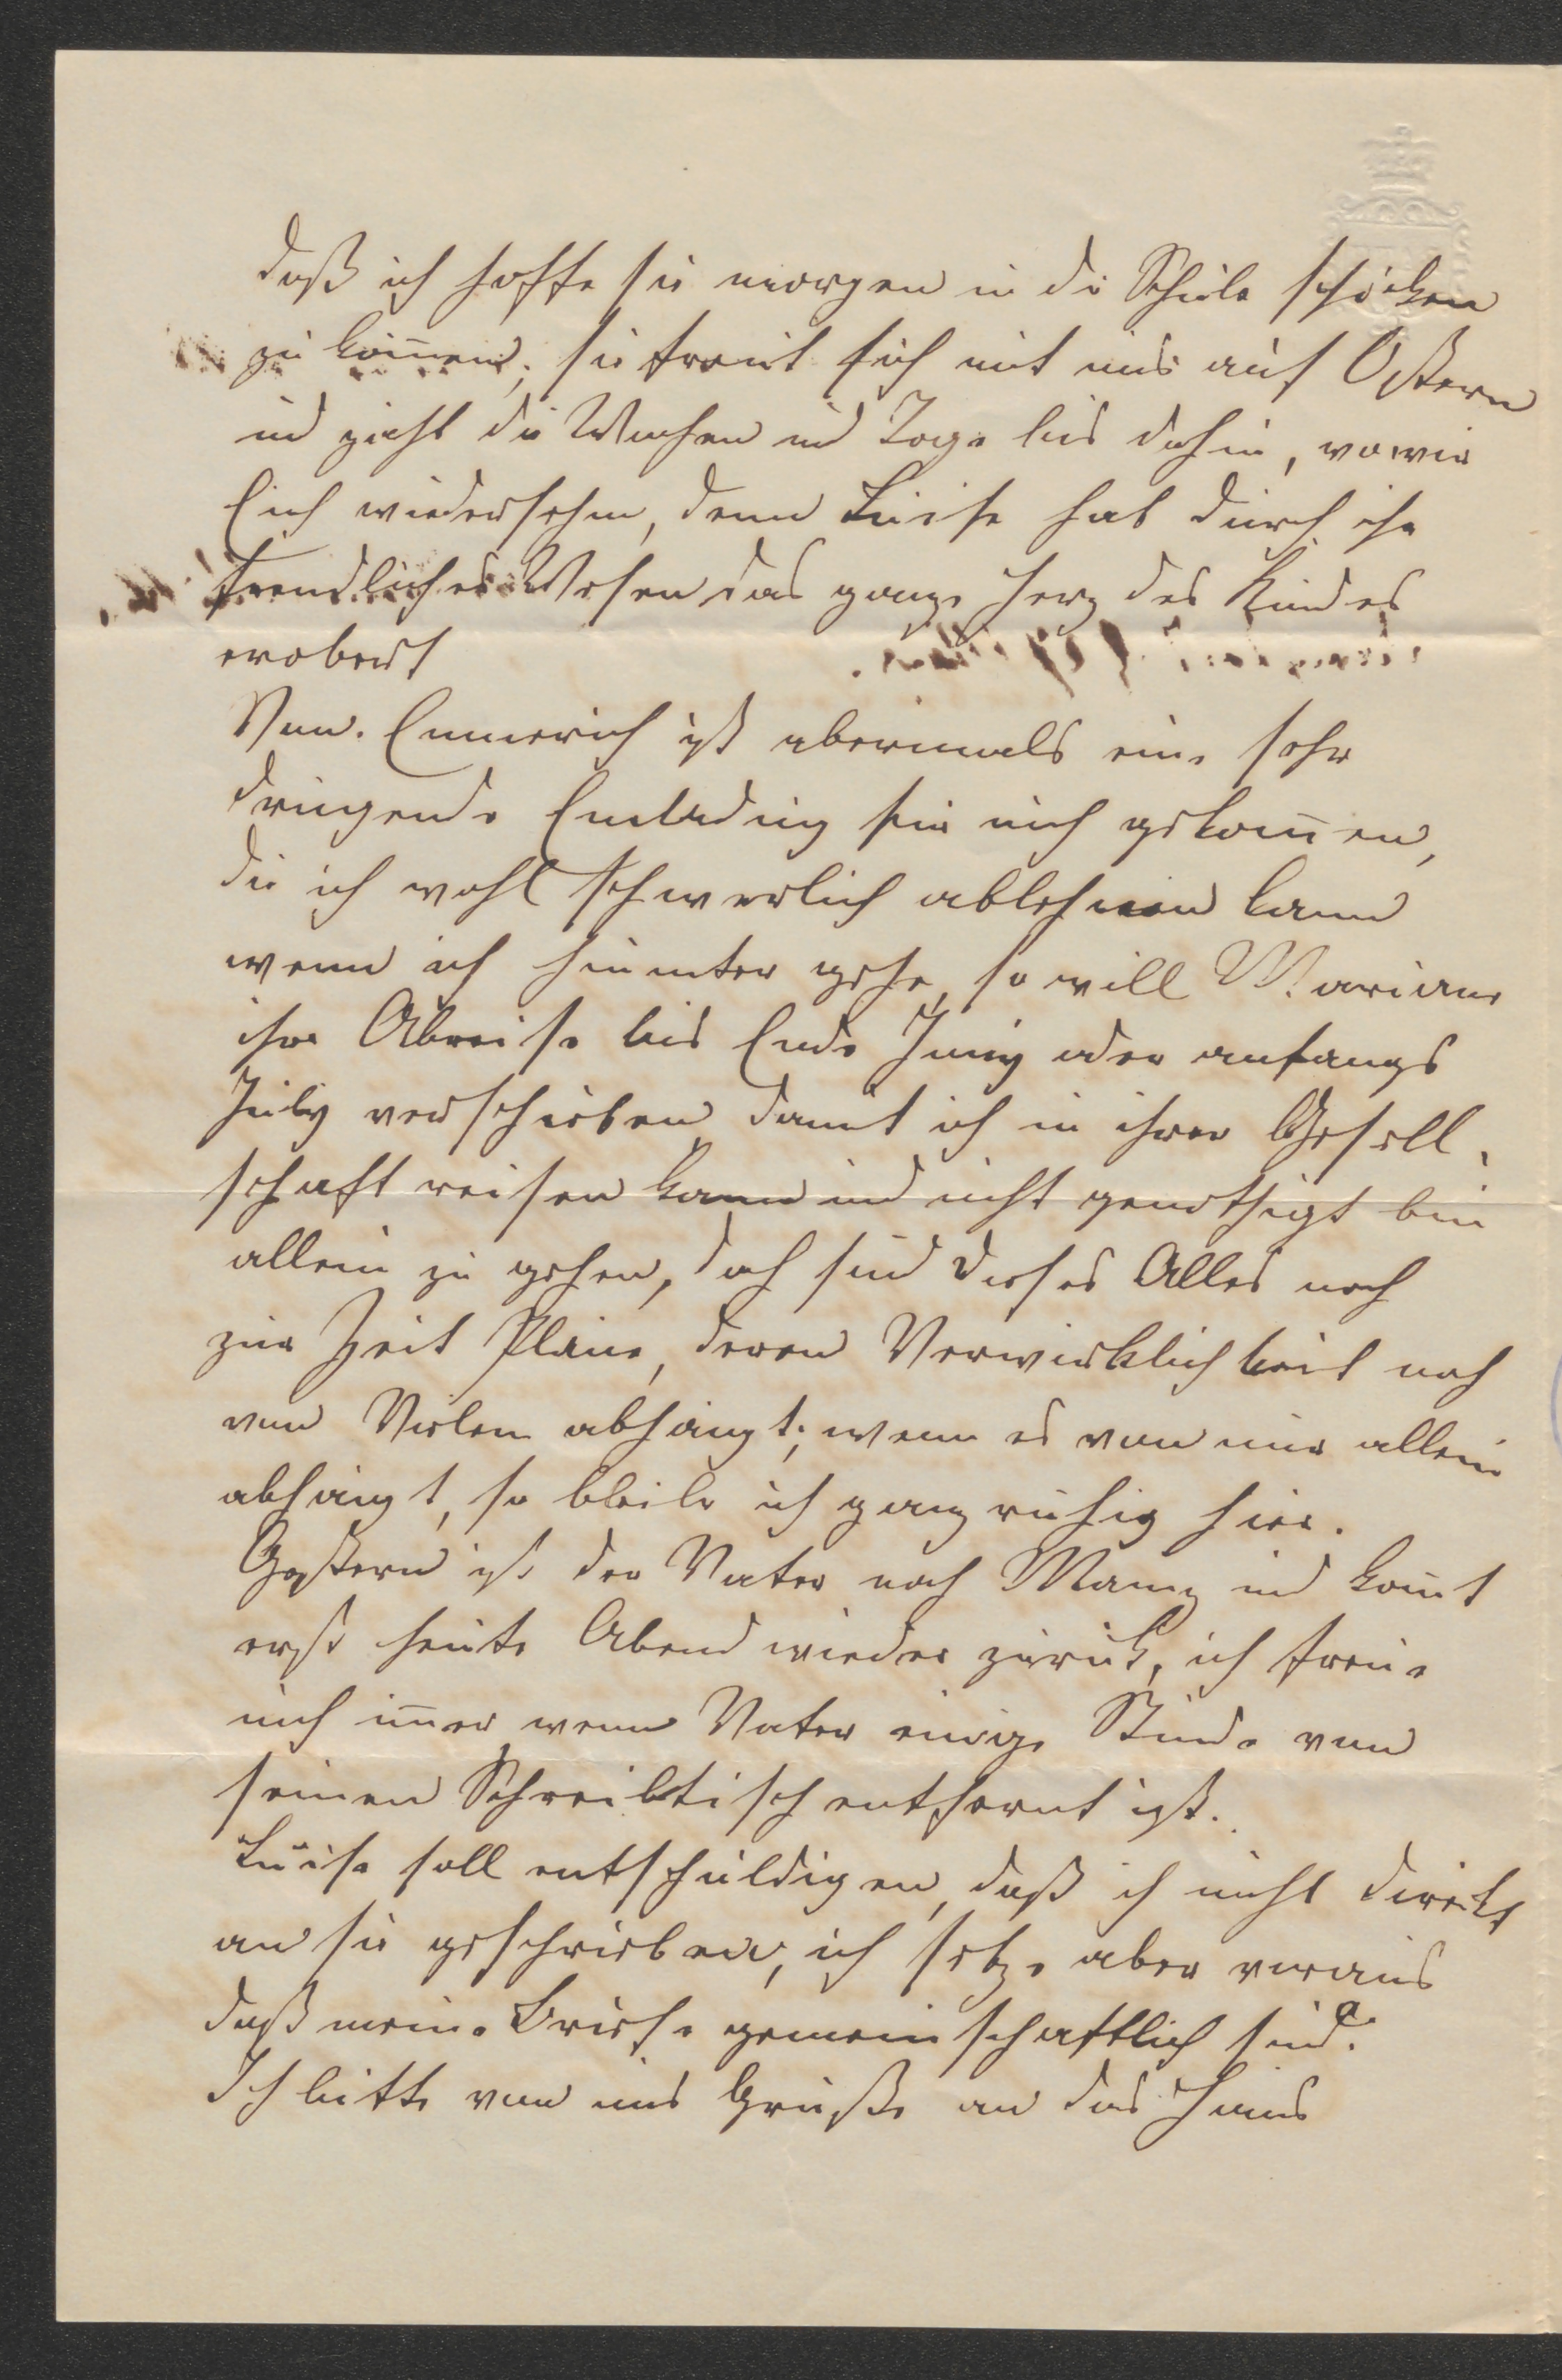 daß ich hoffe sie morgen in die Schule schicken
zu kön̄en; sie freut sich mit uns auf Ostern
und zählt die Wochen und Tage bis dahin, wo wir
Euch wiedersehen, denn Luise hat durch ihr
freundliches Wesen das ganze Herz des Kindes
erobert
Von Emmerich ist abermals eine sehr
dringende Einladung für mich gekom̄en,
die ich wohl schwerlich ablehnen kann
wenn ich hinunter gehe, so will Mariane
ihre Abreise bis Ende Juny oder anfangs
July verschieben damit ich in ihrer Gesell-
schaft reisen kann und nicht genöthigt bin
allein zu gehen, doch sind dieses Alles noch
zur Zeit Pläne, deren Verwirklichkeit noch
von Vielem abhängt; wenn es von mir allein
abhängt, so bleibe ich ganz ruhig hier.
Gestern ist der Vater nach Mainz und kom̄t
erst heute Abend wieder zurück, ich freue
mich im̄er wenn Vater einige Stunde von
seinen Schreibtisch entfernt ist.
Luise soll entschuldigen, daß ich nicht direkt
an sie geschrieben, ich setze aber voraus
daß meine Briefe gemeinschaftlich sind.
Ich bitte von uns Grüße an das Haus